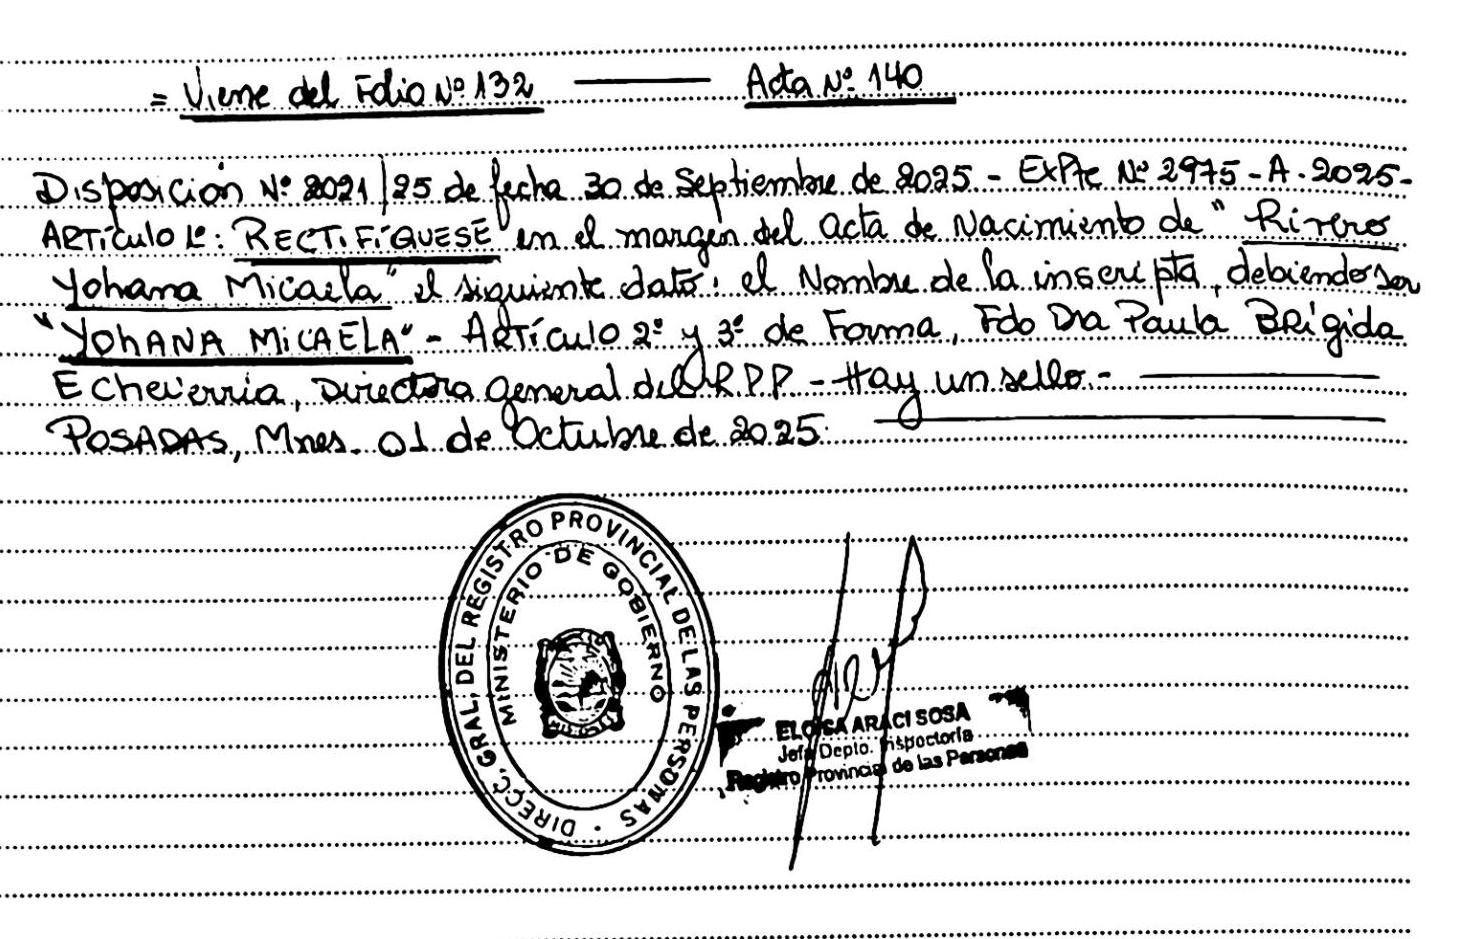 = Viene del Folio Nº 132 ——— Acta Nº 140
Disposición Nº 2021/25 de fecha 30 de Septiembre de 2025 - ExPte Nº 2975-A-2025-
ARTículo 1º: RECTIFÍQUESE en el margen del acta de Nacimiento de "Rivero
Yohana Micaela" el siguiente dato: el Nombre de la inscripta, debiendo ser
"YOhANA MiCAELA" - ARTículo 2º y 3º de Forma, Fdo Dra Paula BRígida
Echeverria, Directora general del R.P.P - Hay un sello.-
POSADAS, Mnes. 01 de Octubre de 2025.
DIRECC. GRAL. DEL REGISTRO PROVINCIAL DE LAS PERSONAS
MINISTERIO DE GOBIERNO
ELOISA ARACI SOSA
Jefa Depto. Inspectoría
Registro Provincial de las Personas